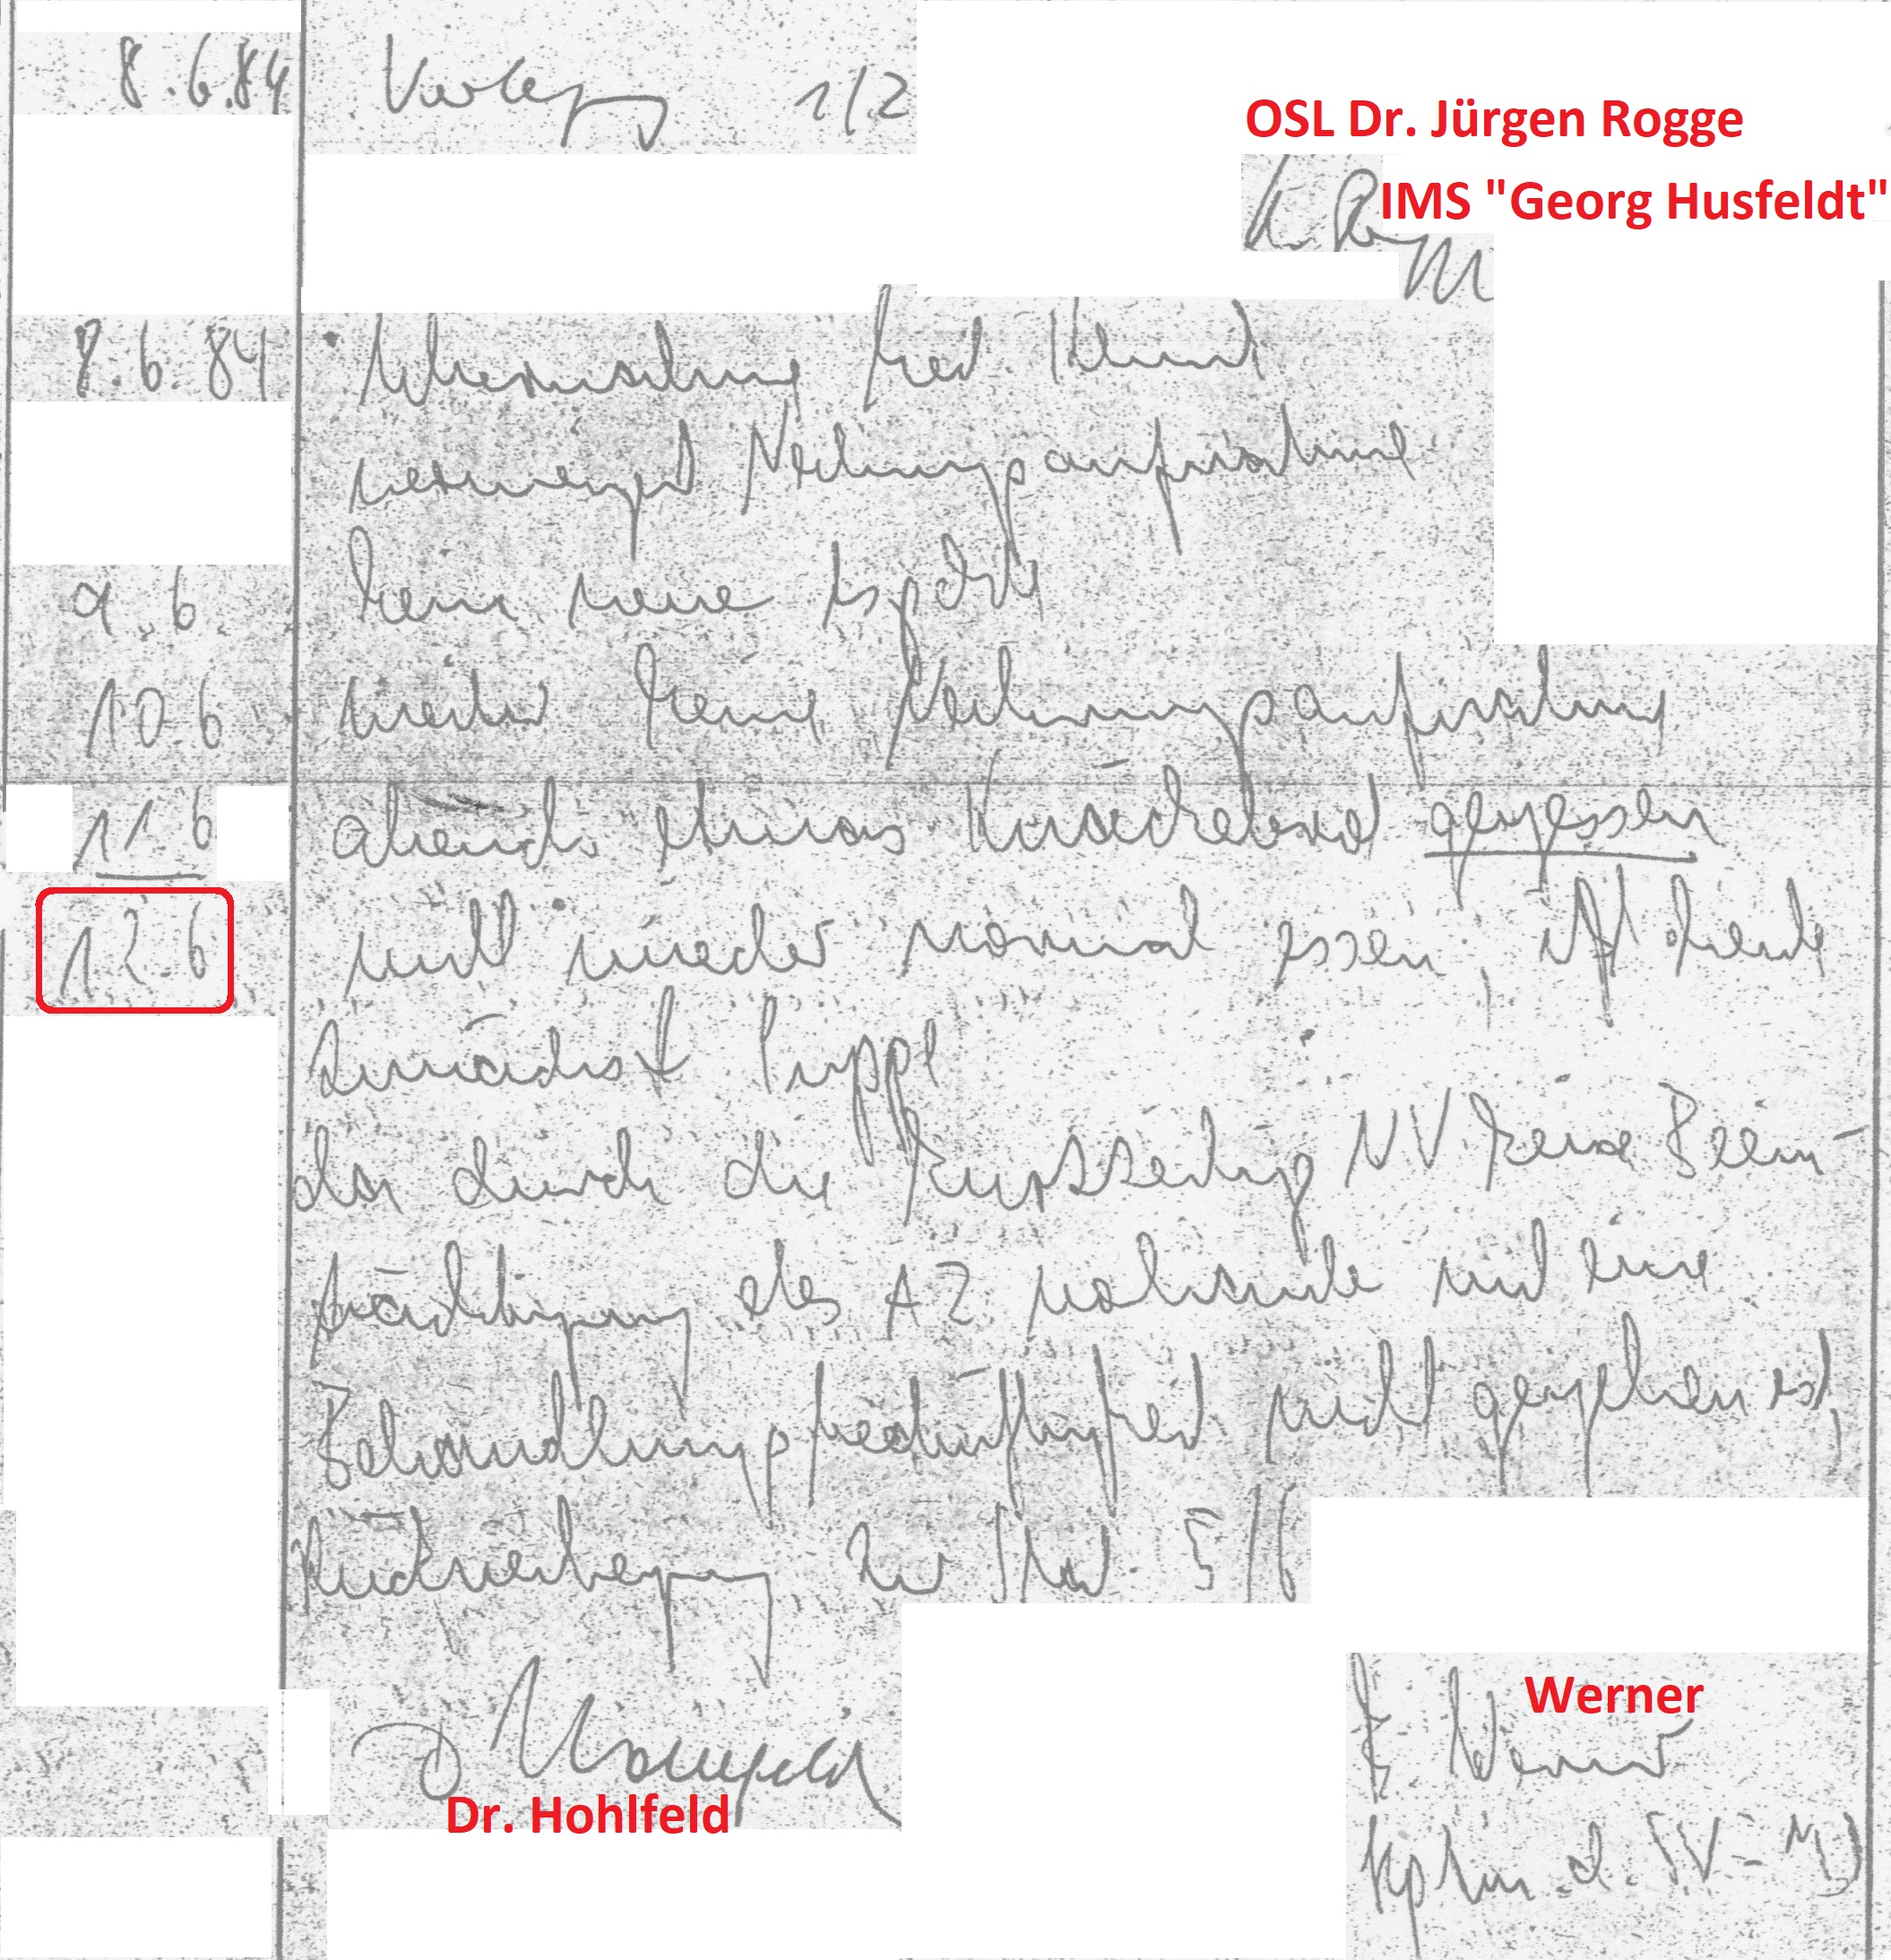 8.6.84 Verlegg 1/2
OSL Dr. Jürgen Rogge
IMS "Georg Husfeldt"
8.6.84 Übernahme Med. Punkt
verweigert Nahrungsaufnahme
9.6. keine neue Aspekte
10.6 weiter keine Nahrungsaufnahme
11.6 abends etwas Knäckebrot gegessen
12.6 will wieder normal essen, ißt heute
zunächst Suppe
da durch die kurzzeitige NV keine Beein-
trächtigung des AZ vorhanden und eine
Behandlungsbedürftigkeit nicht gegeben ist,
Rückverlegung zur 5/6
Dr. Hohlfeld
Werner
Werner
d. SV-